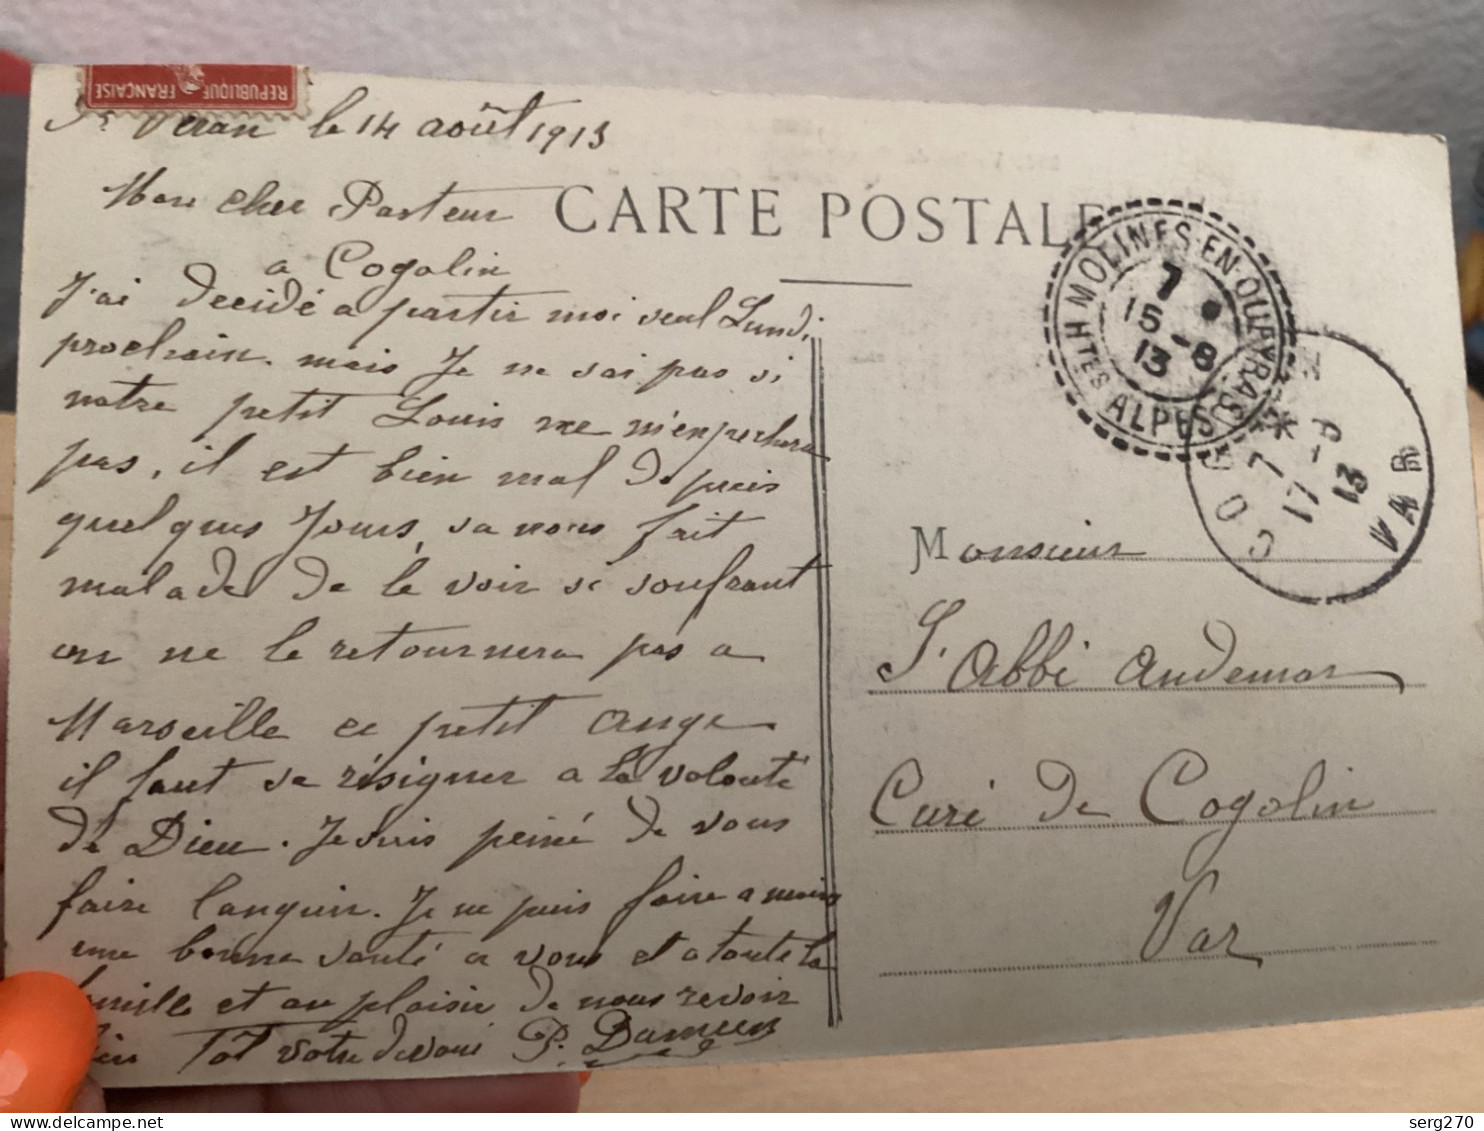 REPUBLIQUE FRANÇAISE
St Veran le 14 août 1913
Mon cher Pasteur
a Cogolin
J'ai decidé a partir moi seul Lundi
prochain. mais Je ne sai pas si
notre petit Louis ne m'enpechera
pas, il est bien mal depuis
quelques Jours, sa nous fait
malade de le voir si soufrant
on ne le retournera pas a
Marseille ce petit ange
il faut se résigner a la volonté
de Dieu. Je suis peiné de vous
faire languir. Je ne puis faire a moins
une bonne santé a vous et a toute la
famille et au plaisir de nous revoir
bien Tôt votre devoué P.
CARTE POSTALE
MOLINES-EN-QUEYRAS
HTES ALPES
7
15 -8
13
COGOLIN
VAR
7
17 -8
13
Monsieur
L'abbé Audemar
Curé de Cogolin
Var
serg270